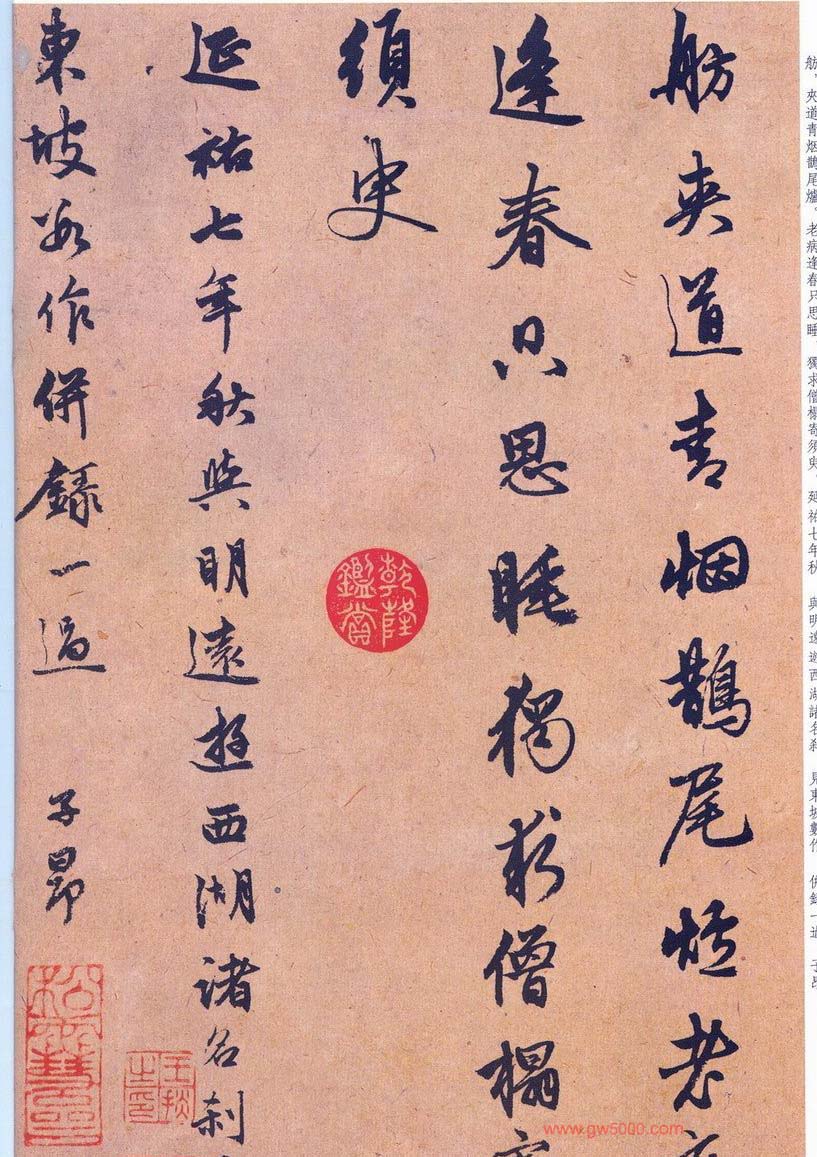 舫，夾道青烟鵲尾爐。老病逢春只思睡，獨求僧榻寄須臾。延祐七年秋，與明遠遊西湖諸名刹，見東坡數作，併錄一過。子昂
舫夾道青烟鵲尾爐老
逢春只思睡獨求僧榻
須臾
乾隆鑑賞
延祐七年秋與明遠遊西湖諸名刹
王掞之印
東坡數作併錄一過 子昂
www.gw5000.com